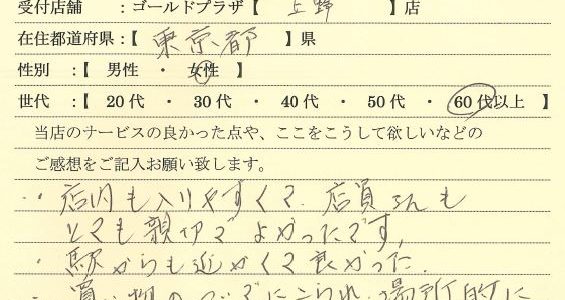 受付店舗 :ゴールドプラザ【 上野 】店
在住都道府県:【 東京都 】県
性別 :【 男性 ・ 女性 】
世代 :【 20代 ・ 30代 ・ 40代 ・ 50代 ・ 60代以上 】
当店のサービスの良かった点や、ここをこうして欲しいなどの
ご感想をご記入お願い致します。
・店内も入りやすくて、店員さんも
とても親切でよかったです。
・駅からも近かくて良かった。
・買い物のついでにこられ、場所的に